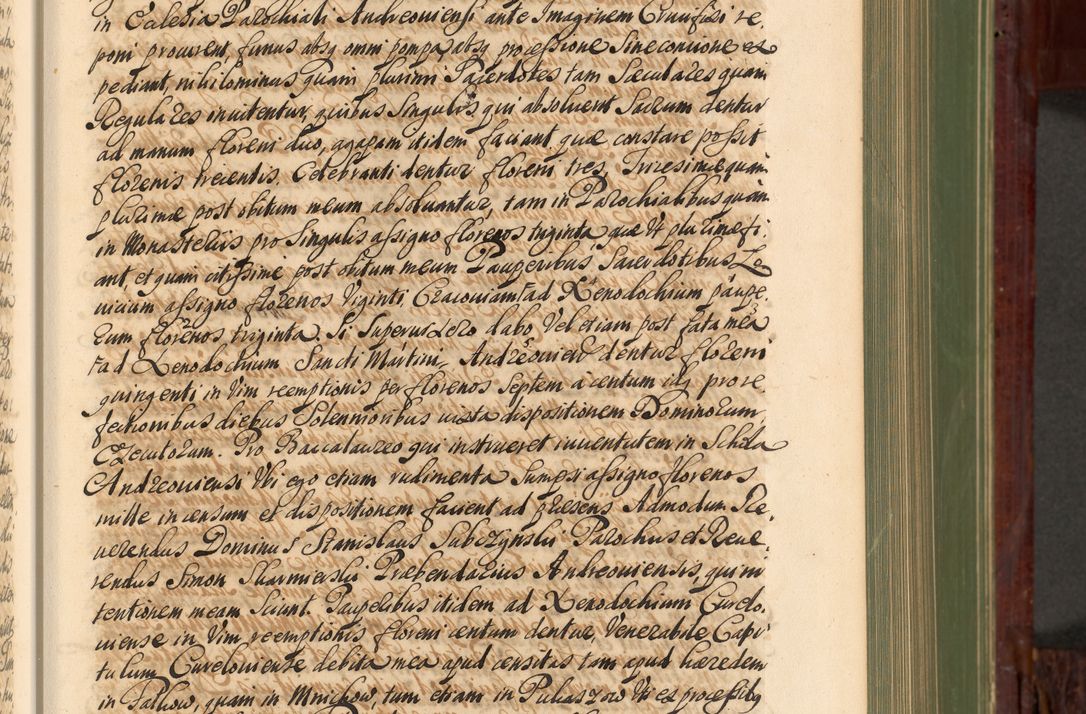 in Eclesia Parochiali Andreouiensi ante Imaginem Crucifixi re
poni procurent, funus absq omni pompa absq processione sine concione ex
pediant, nihilominus quam plurimi Sacerdotes tam Sæculares quam
Regulares inuitentur, quibus singulis qui absoluent Sacrum dentur
ad manum floreni duo, agapam itidem faciant quæ constare possit
florenis trecentis. Celebranti dentur floreni tres. Trizesimæ quam
plurimæ post obitum meum absoluantur tam in Parochialibus quam
in Monasteriis pro singulis assigno florenos triginta quæ Vt plurimæ fi
ant, et quam citissime post obitum meum Pauperibus Sacerdotibus Le
uicium assigno florenos Viginti, Cracouiam ad Xenodochium paupe
rum florenos triginta. Si Superuixero dabo Vel etiam post fata mea
ad Xenodochium Sancti Martini Andreouiæ dentur floreni
quingenti in Vim reemptionis per florenos septem a centum idq pro re
fectionibus diebus Solennioribus iuxta dispositionem Dominorum
Executorum. Pro Baccalaureo qui instrueret iuuentutem in Schola
Andreouiensi Vbi ego etiam rudimenta sumpsi assigno florenos
mille in censum et dispositionem facient ad præsens Admodum Re
uerendus Dominus Stanislaus Subczynski Parochus et Reue,
rendus Simon Skarmierski Præbendarius Andreouiensis, qui in
tentionem meam Sciunt. Pauperibus itidem ad Xenodochium Curelo,
uiense in Vim reemptionis floreni centum dentur, Venerabile Capi
tulum Cureloviense debita mea apud censitas tam apud hæredem
in Falkow, quam in Mnichow, tum etiam in Pukaszow Vt ex processibq